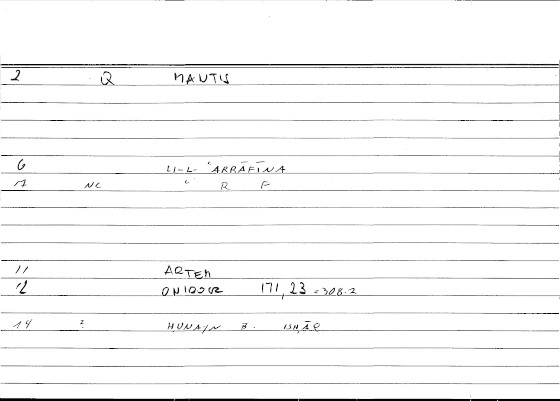 2 Q MAUTIS
6 LI-L-ʿARRĀFĪNA
7 NC ʿ R F
11 ARTEM
12 ONIROCR 171,23 =308.2
14 ? ḤUNAYN B. ISḤĀQ